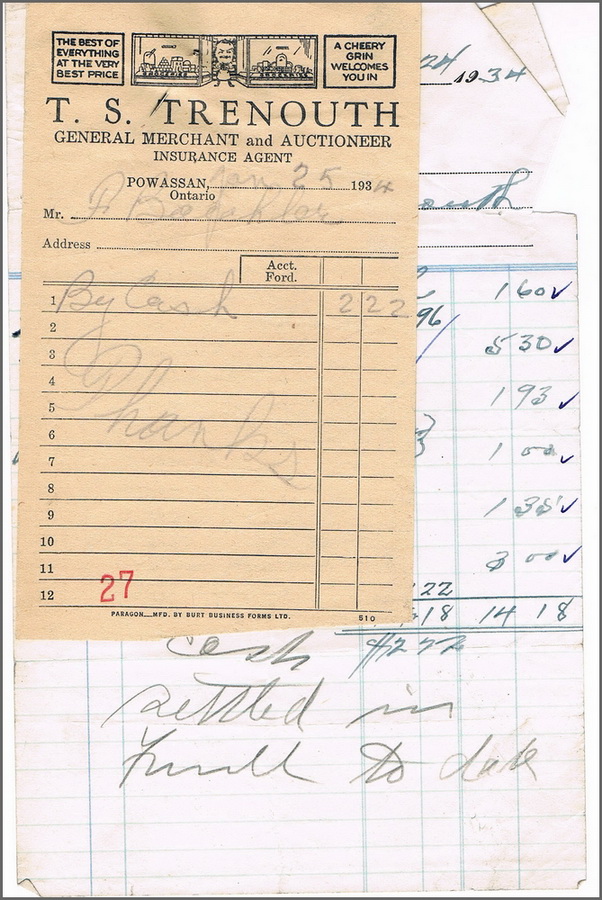 THE BEST OF
EVERYTHING
AT THE VERY
BEST PRICE
A CHEERY
GRIN
WELCOMES
YOU IN
T. S. TRENOUTH
GENERAL MERCHANT and AUCTIONEER
INSURANCE AGENT
POWASSAN, Jan 25 1934
Ontario
Mr.
Address
Acct.
Ford.
1 By Cash 2 22
2
3
4
Thanks
5
6
7
8
9
10
11
12
27
PARAGON—MFD. BY BURT BUSINESS FORMS LTD. 510
24 1934
outh
1 60 ✓
96
5 30 ✓
1 93 ✓
1 00 ✓
1 35 ✓
3 00 ✓
22
18 14 18
Cash $2 22
settled in
full to date